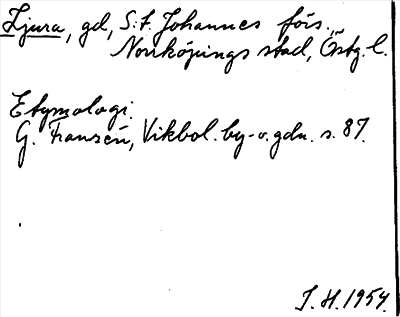 Ljura, gd, S:t Johannes förs.,
Norrköpings stad, Östg. l.
Etymologi.
G. Franzén, Vikbol. by- o. gdn. s. 87.
I. H. 1954.